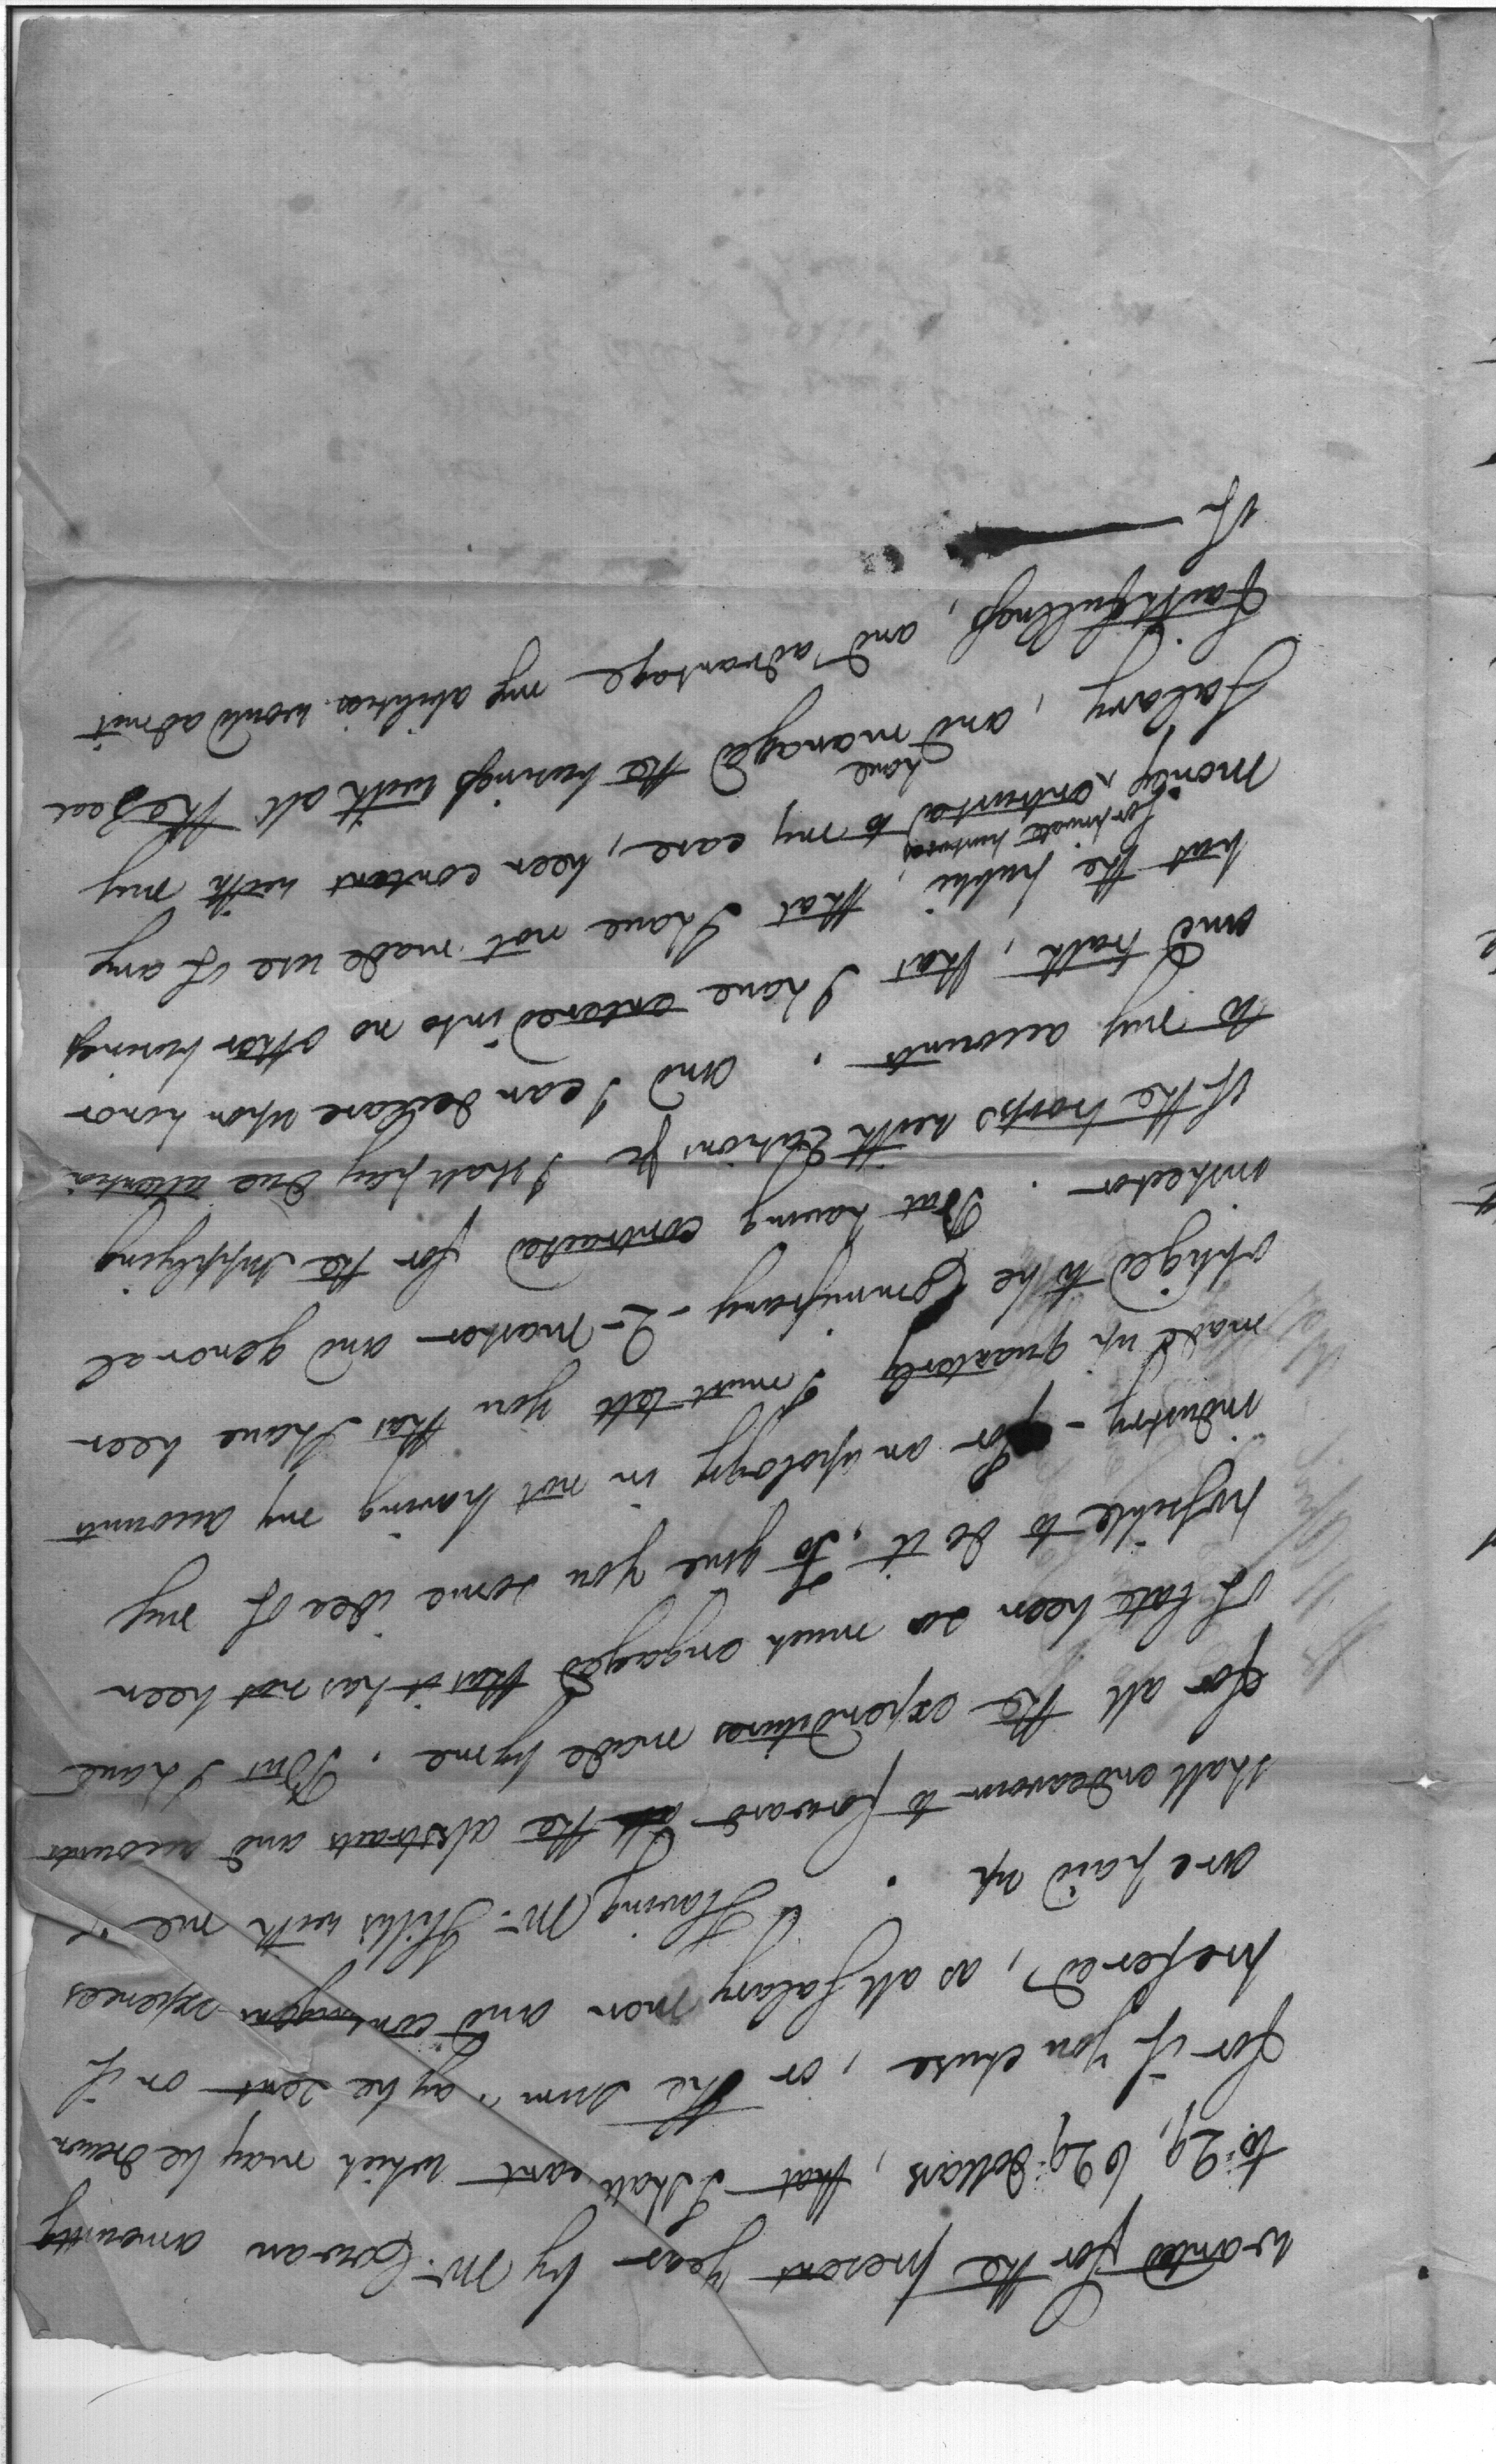 wanted for the present year by Mr. Cowan amounting
to 29,629 dollars, that I shall want which may be drawn
for if you chuse, or the sum may be sent or if
prefered, as all Salary men and contingent expences
are paid up. Having Mr. Hillis with me I
shall endeavour to forward all the abstracts and accounts
for all the expenditures made by me. But I have
of late been so much engaged that it has not been
possible to do it, To give you some idea of my
industry - For an apology in not having my accounts
made up quarterly I must tell you that I have been
obliged to be Commissary - Q - Master and general
inspector. But having contracted for the supplying
of the troops with Rations &c I shall pay due attention
to my accounts. and I can declare upon honor
and truth, that I have entered into no other business
but the public, that I have not made use of any
for private purposes
money entrusted to my care, been content with my
have
Salary, and managed the business with all the Zeal
Faithfullness, and advantage my abilities would admit
of